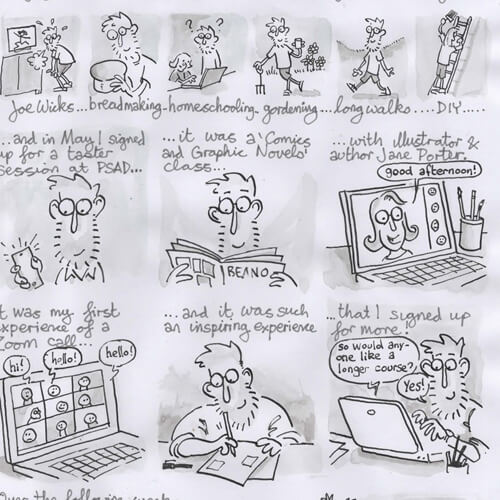 ?
?
Joe Wicks...breadmaking-homeschooling-gardening...long walks.....DIY.....
...and in May I signed
up for a taster
session at PSAD...
...it was a 'Comics
and Graphic Novels'
class...
BEANO
...with illustrator &
author Jane Porter.
good afternoon!
It was my first
experience of a
Zoom call...
hi!
hello!
hello!
...and it was such
an inspiring experience
...that I signed up
for more!
so would any-
one like a
longer course?
Yes!